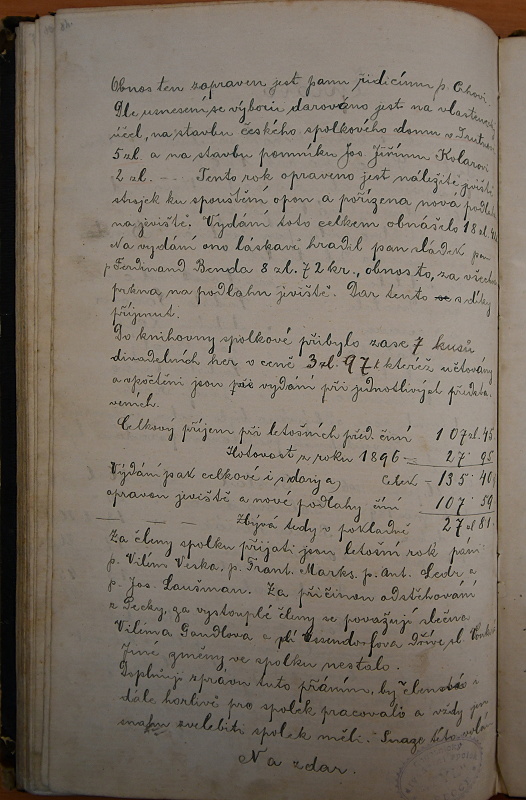 Obnos ten zapraven jest panu řidicímu p.
Dle usnesení se výboru darováno jest na vlastenecký
účel, na stavbu českého spolkového domu v
5 zl. a na stavbu pomníku Jos. Jiřímu Kolarovi
2 zl. — Tento rok opraveno jest náležitě jeviště
strojek ku spouštění opon a pořízena nová podlaha
na jeviště. Vydání toto celkem obnášelo 18 zl.
Na vydání ono láskavě hradil pan sládek pan
Ferdinand Benda 8 zl. 72 kr., obnos to, za všechna
prkna, na podlahu jeviště. Dar tento s díky
přijmut.
Do knihovny spolkové přibylo zase 7 kusů
divadelních her v ceně 3 zl. 97 k kteréž účtovány
a vpočtěni jsou při vydání při jednotlivých předsta-
veních.
Celkový příjem při letošních před. činí 107 zl. 45
Hotovost z roku 1896 — 27 95
Vydání pak celkové i s Celek — 135 40
opravou jeviště a nové podlahy činí 107 59
Zbývá tedy v pokladně 27 zl 81
Za členy spolku přijati jsou letošní rok páni
p. Vilém Verka, p. Frant. Marks. p. Ant. a
p. Jos. Laušman. Za příčinou odstěhování
z Pecky, za vystouplé členy se považují slečna
Viléma Gandlova a
Jiné změny ve spolku nestalo.
Doplňuji zprávu tuto přáním, by členové i
dále horlivě pro spolek pracovali a vždy jen
snahu zvelebiti spolek měli. Snaze této volám
Na zdar.